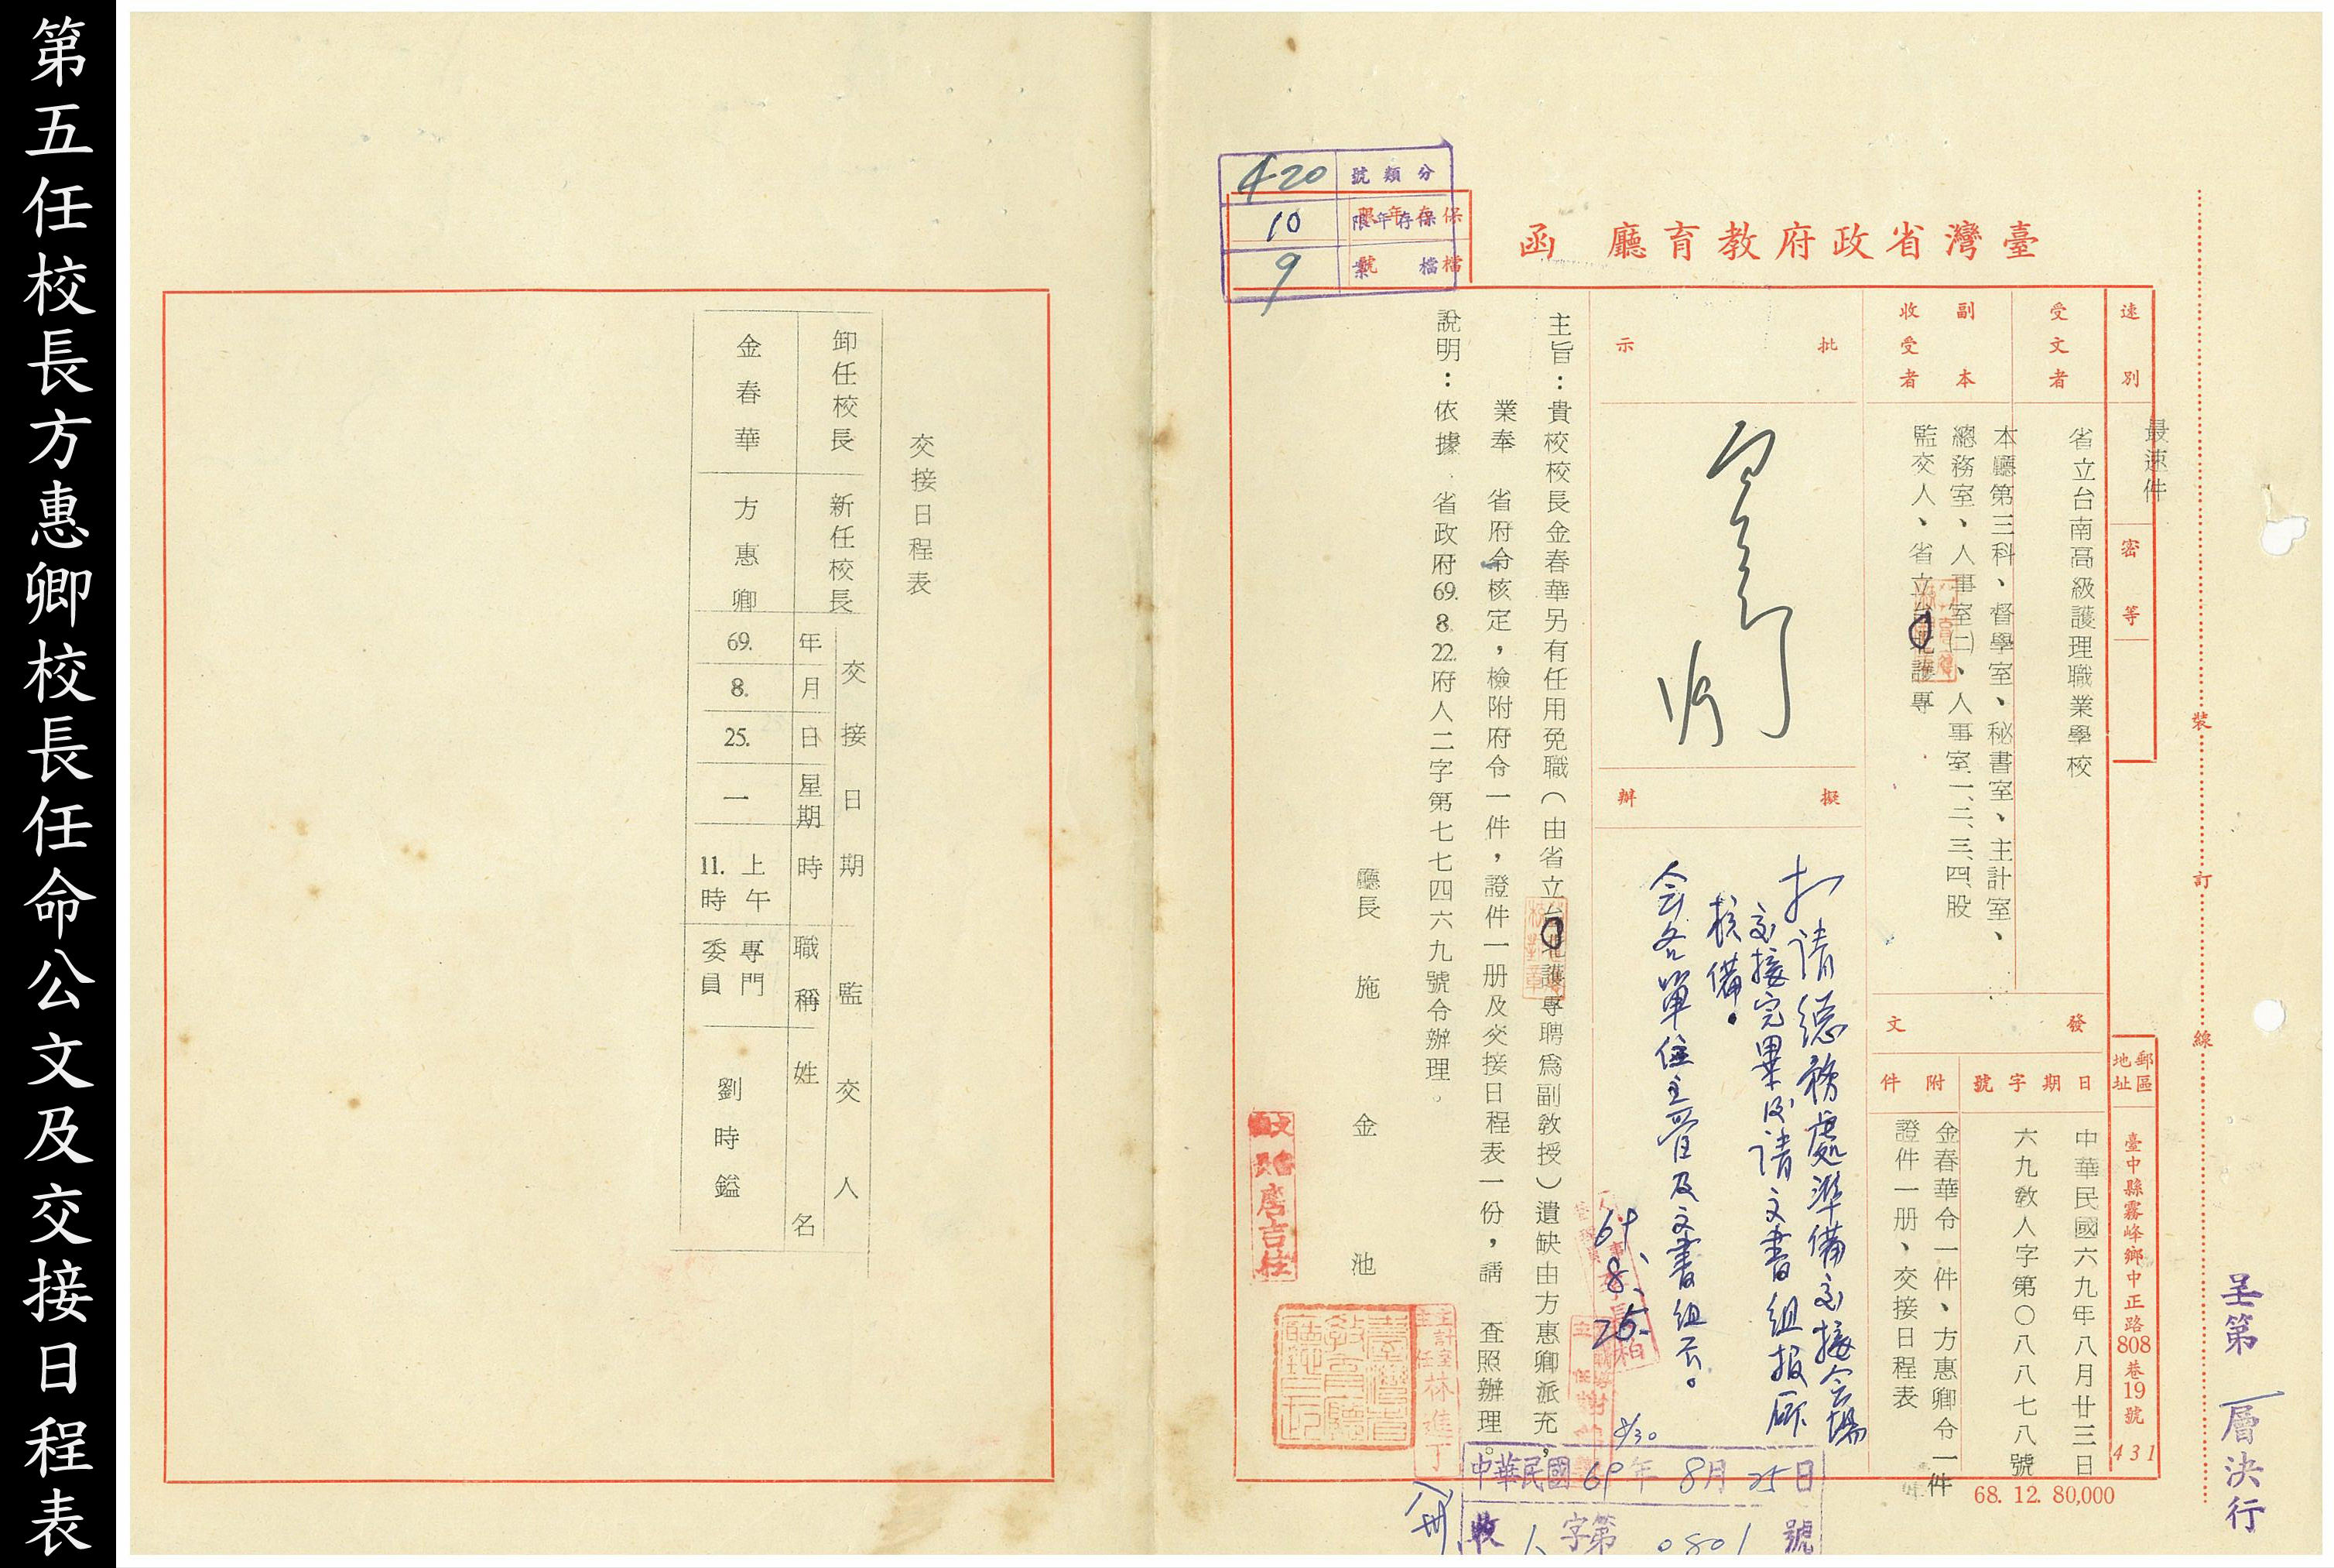 第五任校長方惠卿校長任命公文及交接日程表
臺灣省政府教育廳 函
分類號 420
保存年限 10
檔號 9
檔案
速別 最速件
密等
郵區地址 臺中縣霧峰鄉中正路808巷19號 431
受文者 省立台南高級護理職業學校
副本收受者
本廳第三科、督學室、秘書室、主計室、
總務室、人事室㈡、人事室一、二、三、四、股
監交人、省立台北護專
發文
日期 中華民國六九年八月廿三日
字號 六九教人字第〇八八七八號
附件 金春華令一件、方惠卿令一件
證件一册、交接日程表
批示
擬辦
請總務處準備交接會場
交接完畢後請文書組報廳
核備。
会各單位主管及文書組云。
69、8、25.
8/30
主旨：貴校校長金春華另有任用免職（由省立台北護專聘為副教授）遺缺由方惠卿派充，
業奉 省府令核定，檢附府令一件，證件一册及交接日程表一份，請 查照辦理。
說明：依據 省政府69. 8. 22.府人二字第七七四六九號令辦理。
廳長 施金池
主計室主任 林進丁
中華民國69年8月25日
收人字第0801號
68. 12. 80,000
裝訂線
呈第一層決行
交接日程表
卸任校長 新任校長 交接日期 監交人
年 月 日 星期 時 職稱 姓名
金春華 方惠卿 69. 8. 25. 一 上午11.時 專門委員 劉時鎰